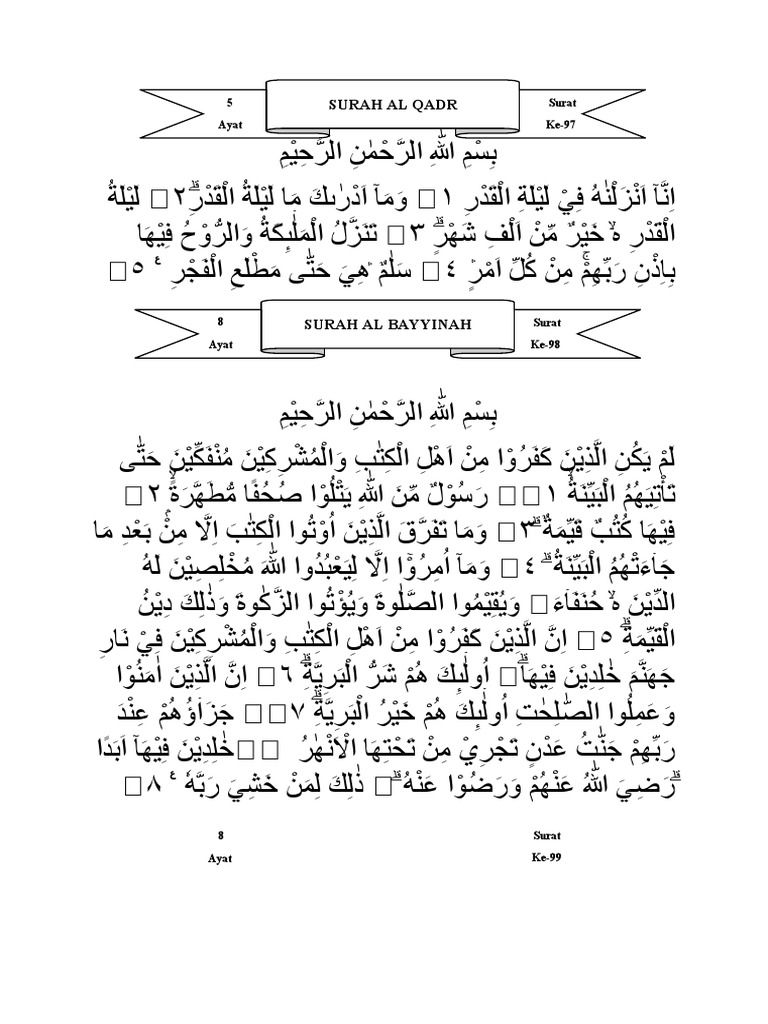 5 SURAH AL QADR Surat
Ayat Ke-97
بِسْمِ اللّٰهِ الرَّحْمٰنِ الرَّحِيْمِ
اِنَّآ اَنْزَلْنٰهُ فِيْ لَيْلَةِ الْقَدْرِ ١ وَمَآ اَدْرٰىكَ مَا لَيْلَةُ الْقَدْرِۗ ٢ لَيْلَةُ
الْقَدْرِ ەۙ خَيْرٌ مِّنْ اَلْفِ شَهْرٍۗ ٣ تَنَزَّلُ الْمَلٰۤىِٕكَةُ وَالرُّوْحُ فِيْهَا
بِاِذْنِ رَبِّهِمْۚ مِنْ كُلِّ اَمْرٍۛ ٤ سَلٰمٌ ۛهِيَ حَتّٰى مَطْلَعِ الْفَجْرِ ࣖ ٥
8 SURAH AL BAYYINAH Surat
Ayat Ke-98
بِسْمِ اللّٰهِ الرَّحْمٰنِ الرَّحِيْمِ
لَمْ يَكُنِ الَّذِيْنَ كَفَرُوْا مِنْ اَهْلِ الْكِتٰبِ وَالْمُشْرِكِيْنَ مُنْفَكِّيْنَ حَتّٰى
تَأْتِيَهُمُ الْبَيِّنَةُۙ ١ رَسُوْلٌ مِّنَ اللّٰهِ يَتْلُوْا صُحُفًا مُّطَهَّرَةًۙ ٢
فِيْهَا كُتُبٌ قَيِّمَةٌۗ ٣ وَمَا تَفَرَّقَ الَّذِيْنَ اُوْتُوا الْكِتٰبَ اِلَّا مِنْۢ بَعْدِ مَا
جَاۤءَتْهُمُ الْبَيِّنَةُۗ ٤ وَمَآ اُمِرُوْٓا اِلَّا لِيَعْبُدُوا اللّٰهَ مُخْلِصِيْنَ لَهُ
الدِّيْنَ ەۙ حُنَفَاۤءَ وَيُقِيْمُوا الصَّلٰوةَ وَيُؤْتُوا الزَّكٰوةَ وَذٰلِكَ دِيْنُ
الْقَيِّمَةِۗ ٥ اِنَّ الَّذِيْنَ كَفَرُوْا مِنْ اَهْلِ الْكِتٰبِ وَالْمُشْرِكِيْنَ فِيْ نَارِ
جَهَنَّمَ خٰلِدِيْنَ فِيْهَاۗ اُولٰۤىِٕكَ هُمْ شَرُّ الْبَرِيَّةِۗ ٦ اِنَّ الَّذِيْنَ اٰمَنُوْا
وَعَمِلُوا الصّٰلِحٰتِ اُولٰۤىِٕكَ هُمْ خَيْرُ الْبَرِيَّةِۗ ٧ جَزَاۤؤُهُمْ عِنْدَ
رَبِّهِمْ جَنّٰتُ عَدْنٍ تَجْرِيْ مِنْ تَحْتِهَا الْاَنْهٰرُ خٰلِدِيْنَ فِيْهَآ اَبَدًا
ۗرَضِيَ اللّٰهُ عَنْهُمْ وَرَضُوْا عَنْهُۗ ذٰلِكَ لِمَنْ خَشِيَ رَبَّهٗ ࣖ ٨
8 Surat
Ayat Ke-99